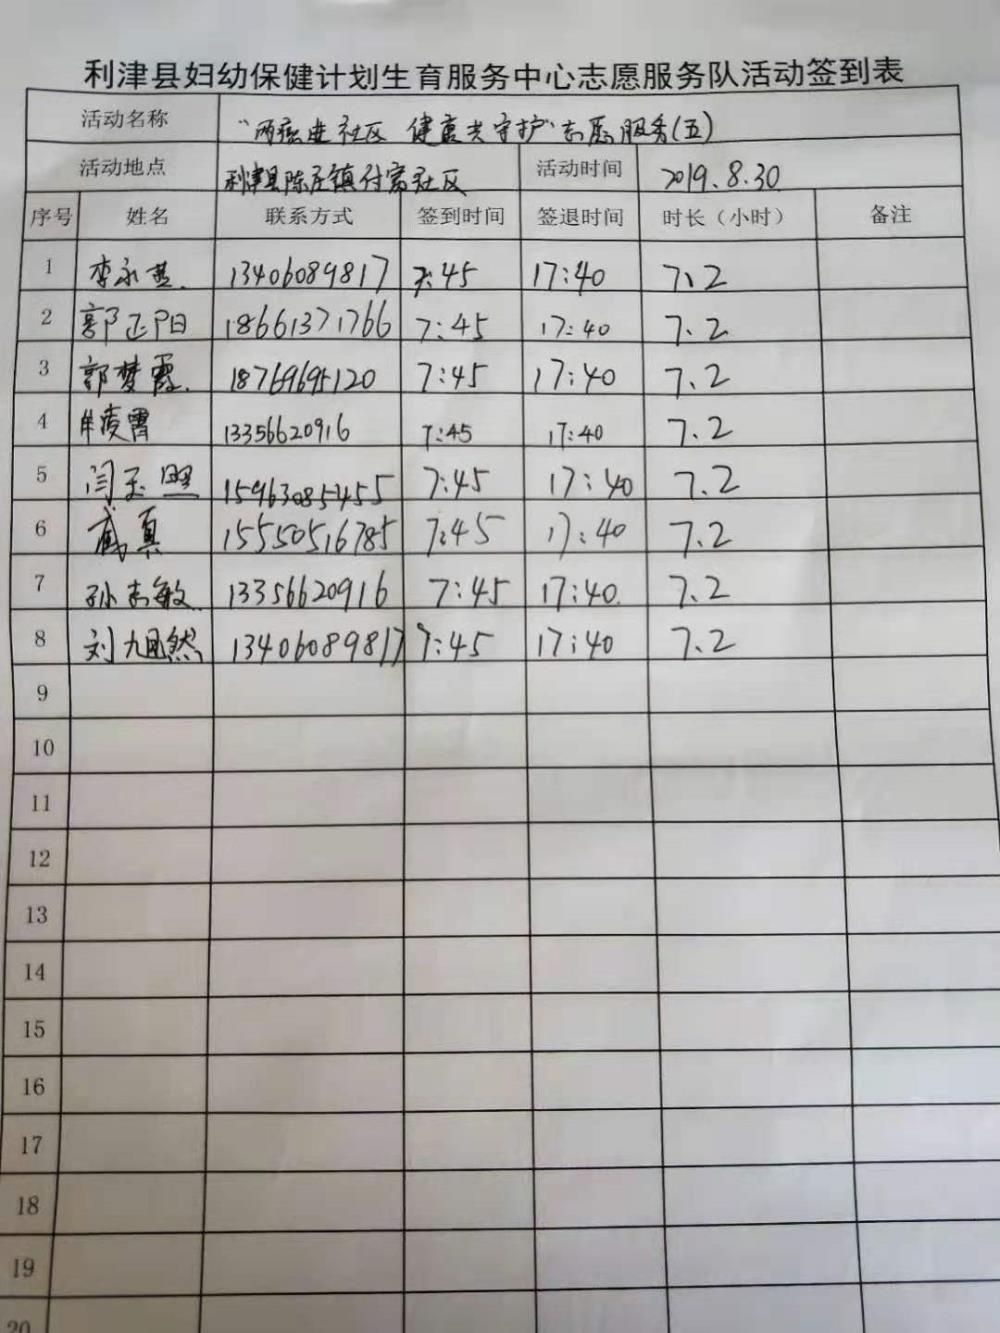 利津县妇幼保健计划生育服务中心志愿服务队活动签到表
活动名称 “两癌进社区 健康共守护”志愿服务(五)
活动地点 利津县陈庄镇付窝社区 活动时间 2019.8.30
序号 姓名 联系方式 签到时间 签退时间 时长（小时） 备注
1 李永 13406089817 7:45 17:40 7.2
2 郭正阳 18661371766 7:45 17:40 7.2
3 郭梦霞 18769695120 7:45 17:40 7.2
4 凌霄 13356620916 7:45 17:40 7.2
5 闫玉照 15963085455 7:45 17:40 7.2
6 真 15550516785 7:45 17:40 7.2
7 孙志敏 13356620916 7:45 17:40 7.2
8 刘旭然 13406089817 7:45 17:40 7.2
9
10
11
12
13
14
15
16
17
18
19
20